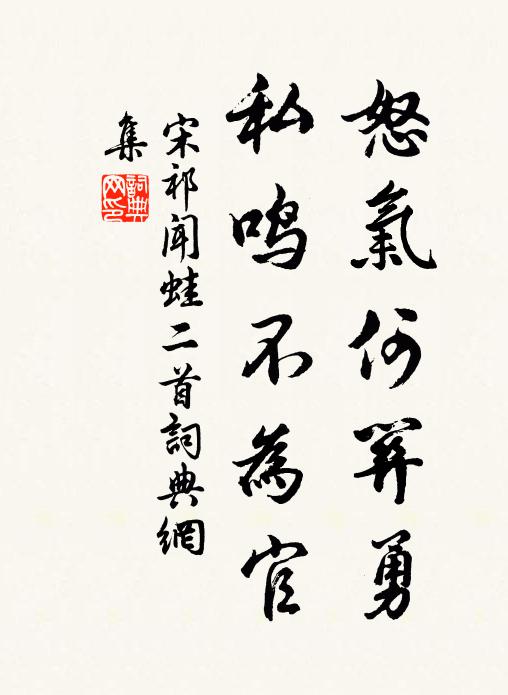 怒氣何關勇
私鳴不為官
宋祁聞蛙二首詞典網
集
詞典网印